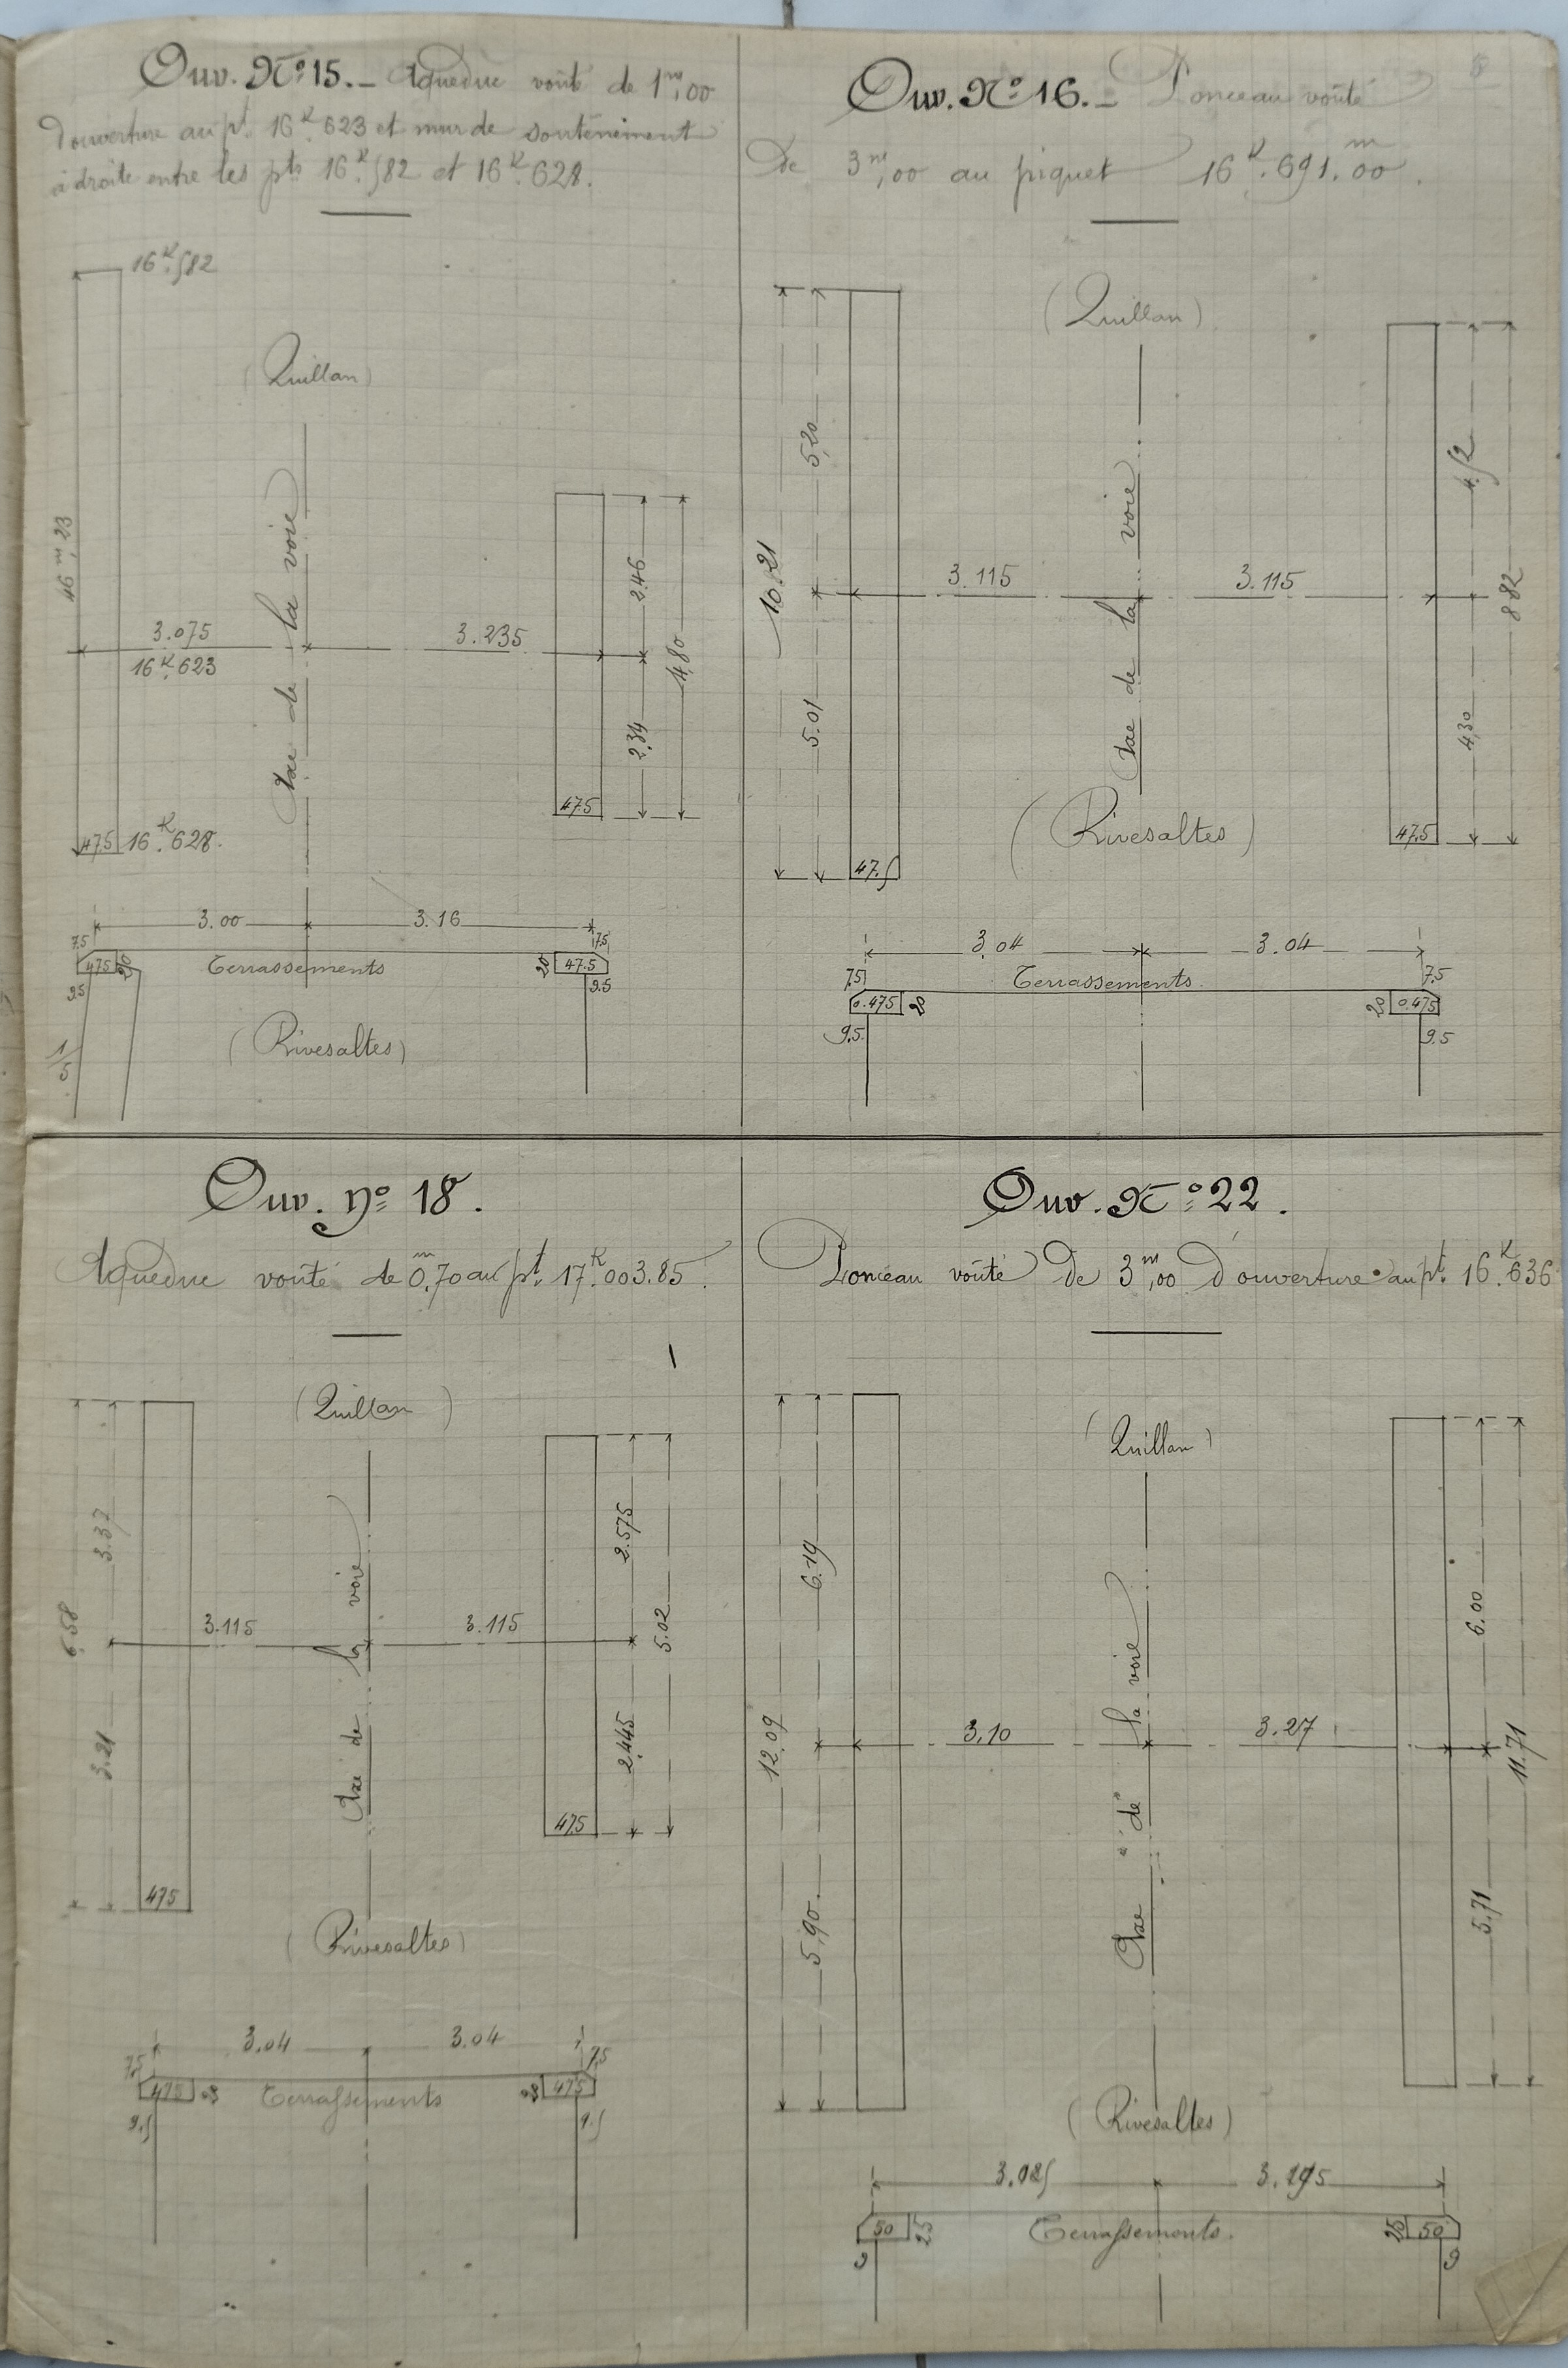 Ouv. N° 15. _ Aqueduc voûté de 1m,00
d'ouverture au pt. 16K.623 et mur de soutènement
à droite entre les pts 16K.582 et 16K.628.
16K.582
(Quillan)
46m,23
Axe de la voie
3.075
16K.623
3.235
2.46
4,80
2.34
47.5
47.5
16K.628.
3.00
3.16
7.5
7.5
47.5
20
Terrassements
20
47.5
9.5
9.5
1/5
(Rivesaltes)
Ouv. N° 16. _ Ponceau voûté
de 3m,00 au piquet 16K.691.m00.
(Quillan)
5,20
10.21
5.01
3.115
3.115
Axe de la voie
4.52
8.82
4,30
(Rivesaltes)
47.5
47.5
3,04
3.04
7.5
7.5
Terrassements.
0.475
20
20
0.475
9.5
9.5
Ouv. n° 18.
Aqueduc voûté de 0m,70 au pt. 17K.003.85.
(Quillan)
3.37
6.58
3.21
3.115
3.115
Axe de la voie
2.575
5.02
2.445
475
475
(Rivesaltes)
3.04
3.04
7.5
7.5
475
Terrassements
475
9.5
9.5
Ouv. N° 22.
Ponceau voûté de 3m,00 d'ouverture au pt. 16K.636
(Quillan)
6.19
12.09
5,90.
3,10
3.27
Axe de la voie
6.00
11.71
5.71
(Rivesaltes)
3.025
3.195
50
25
Terrassements.
25
50
9
9